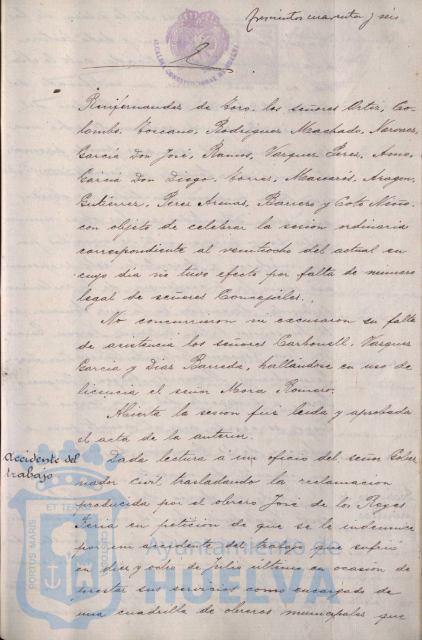 trescientos cuarenta y seis
ALCALDIA CONSTITUCIONAL DE HUELVA
Quifernandez de Toro, los señores Ortiz, Co-
lombo, Toscano, Rodriguez Machado, Narvaez,
Garcia Don José, Ramos, Vazquez Perez, Amo,
Garcia Don Diego, Torres, Mascarós, Aragon,
Gutierrez, Perez Arenas, Barrero y Coto Niño
con objeto de celebrar la sesion ordinaria
correspondiente al veintiocho del actual en
cuyo dia no tuvo efecto por falta de numero
legal de señores Concejales.
No concurrieron ni excusaron su falta
de asistencia los señores Carbonell, Vazquez
Garcia y Diaz Barreda, hallándose en uso de
licencia el señor Mora Romero.
Abierta la sesion fué leida y aprobada
el acta de la anterior.
Accidente del
trabajo
Dada lectura á un oficio del señor Gober
nador Civil trasladando la reclamacion
producida por el obrero José de los Reyes
Feria en peticion de que se le indemnice
por un accidente del trabajo que sufrió
en diez y ocho de Julio ultimo en ocasion de
prestar sus servicios como encargado de
una cuadrilla de obreros municipales que
PORTUS MARIS
ET TERRAE
CUSTODIA
Ayuntamiento de
HUELVA